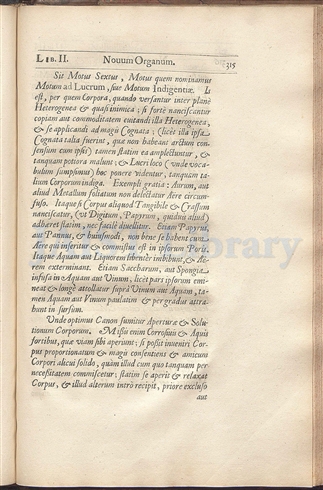 LIB. II. Nouum Organum. 315
Sit Motus Sextus, Motus quem nominamus
Motum ad Lucrum, siue Motum Indigentiæ. Is
est, per quem Corpora, quando versantur inter planè
Heterogenea & quasi inimica; si fortè nanciscantur
copiam aut commoditatem euitandi illa Heterogenea,
& se applicandi ad magis Cognata; (licèt illa ipsa
Cognata talia fuerint, quæ non habeant arctum con-
sensum cum ipsis) tamen statim ea amplectuntur, &
tanquam potiora malunt; & Lucri loco (vnde voca-
bulum sumpsimus) hoc ponere videntur, tanquam ta-
lium Corporum indiga. Exempli gratia: Aurum, aut
aliud Metallum foliatum non delectatur Aëre circum-
fuso. Itaque si Corpus aliquod Tangibile & Crassum
nanciscatur, (vt Digitum, Papyrum, quiduis aliud)
adhæret statim, nec facilè diuellitur. Etiam Papyrus,
aut Pannus, & huiusmodi, non bene se habent cum
Aëre qui inseritur & commistus est in ipsorum Poris.
Itaque Aquam aut Liquorem libenter imbibunt, & Aë-
rem exterminant. Etiam Saccharum, aut Spongia
infusa in Aquam aut Vinum, licèt pars ipsorum emi-
neat & longè attollatur suprà Vinum aut Aquam, ta-
men Aquam aut Vinum paulatim & per gradus attra-
hunt in sursum.
Vnde optimus Canon sumitur Aperturæ & Solu-
tionum Corporum. Missis enim Corrosiuis & Aquis
fortibus, quæ viam sibi aperunt; si possit inueniri Cor-
pus proportionatum & magis consentiens & amicum
Corpori alicui solido, quàm illud cum quo tanquam per
necessitatem commiscetur; statim se aperit & relaxat
Corpus, & illud alterum intrò recipit, priore excluso
aut
Library